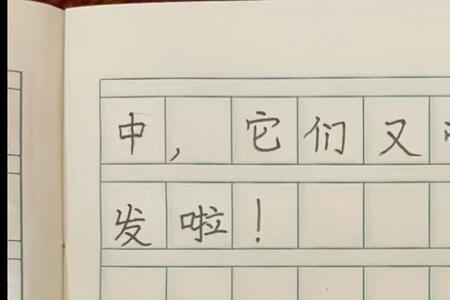 中，它们又
发啦！